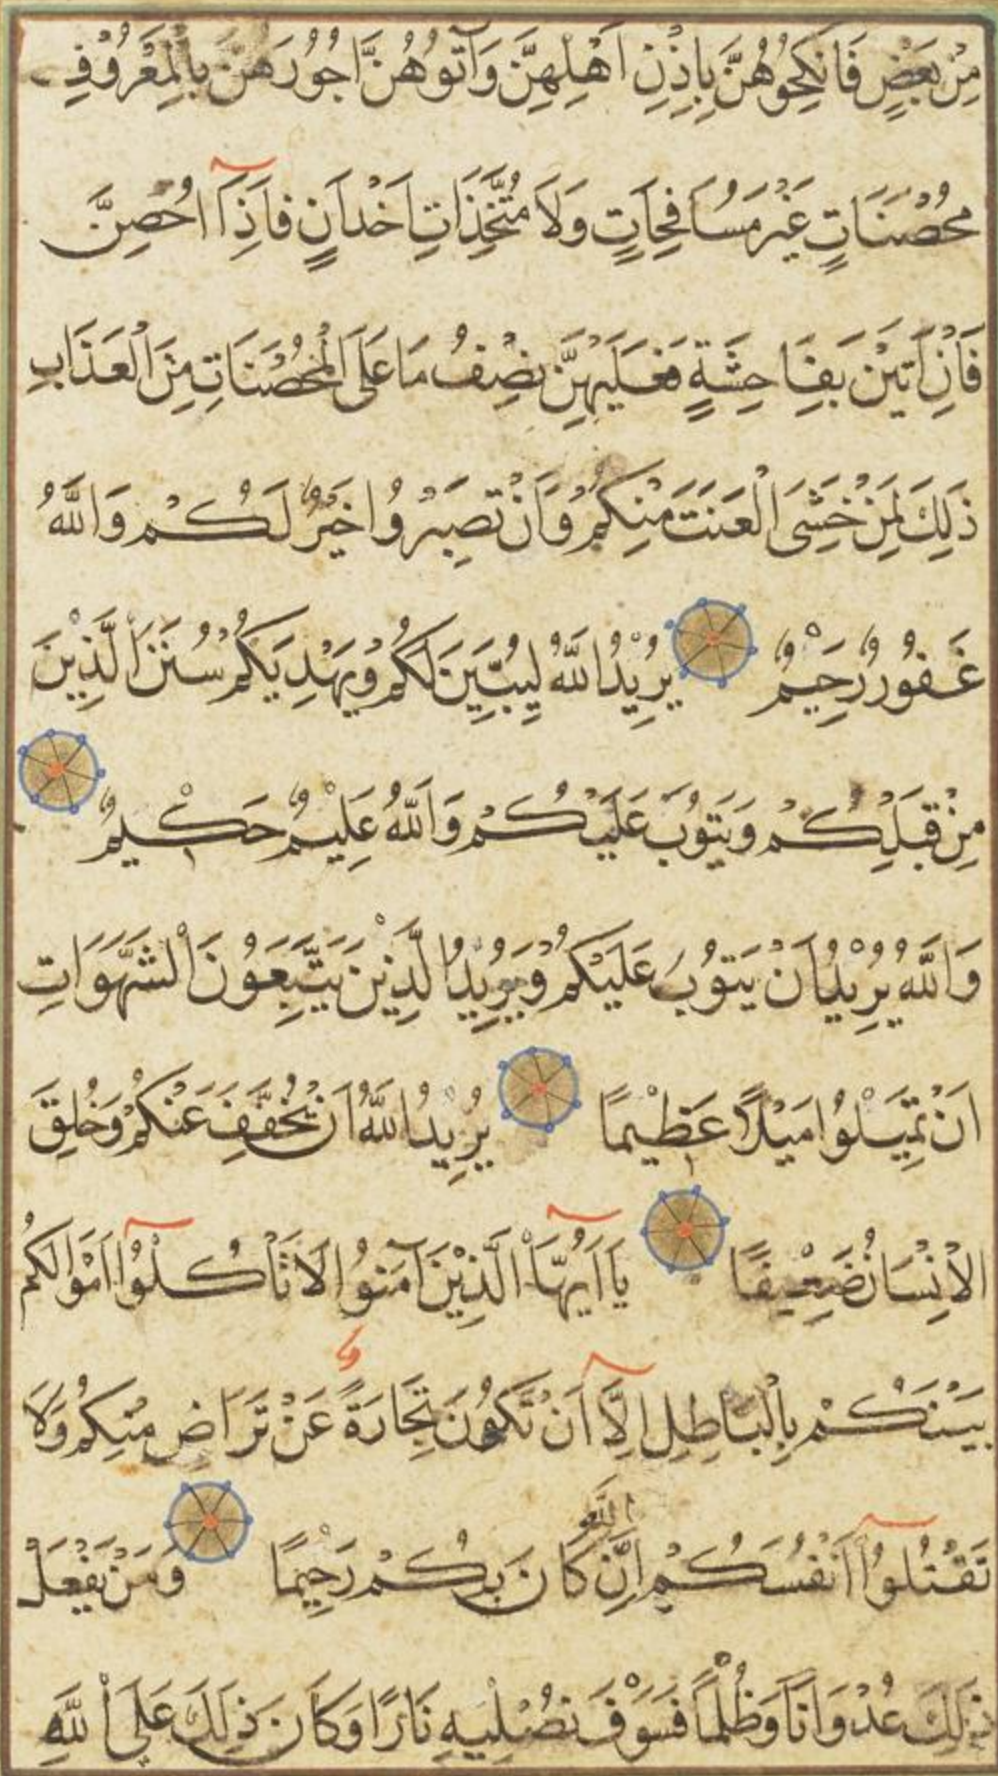 مِنْ بَعْضٍ فَانْكِحُوهُنَّ بِاِذْنِ اَهْلِهِنَّ وَآتُوهُنَّ اُجُورَهُنَّ بِالْمَعْرُوفِ
مُحْصَنَاتٍ غَيْرَ مُسَافِحَاتٍ وَلَا مُتَّخِذَاتِ اَخْدَانٍ فَاِذَآ اُحْصِنَّ
فَاِنْ اَتَيْنَ بِفَاحِشَةٍ فَعَلَيْهِنَّ نِصْفُ مَا عَلَى الْمُحْصَنَاتِ مِنَ الْعَذَابِ
ذَلِكَ لِمَنْ خَشِىَ الْعَنَتَ مِنْكُمْ وَاَنْ تَصْبِرُوا خَيْرٌ لَكُمْ وَاللَّهُ
غَفُورٌ رَحِيمٌ يُرِيْدُ اللَّهُ لِيُبَيِّنَ لَكُمْ وَيَهْدِيَكُمْ سُنَنَ الَّذِيْنَ
مِنْ قَبْلِكُمْ وَيَتُوبَ عَلَيْكُمْ وَاللَّهُ عَلِيْمٌ حَكِيمٌ
وَاللَّهُ يُرِيْدُ اَنْ يَتُوبَ عَلَيْكُمْ وَيُرِيْدُ الَّذِيْنَ يَتَّبِعُونَ الشَّهَوَاتِ
اَنْ تَمِيْلُوا مَيْلًا عَظِيْمًا يُرِيْدُ اللَّهُ اَنْ يُخَفِّفَ عَنْكُمْ وَخُلِقَ
الْاِنْسَانُ ضَعِيْفًا يَا اَيُّهَا الَّذِيْنَ آمَنُوا لَا تَاْكُلُوآ اَمْوَالَكُمْ
بَيْنَكُمْ بِالْبَاطِلِ اِلَّآ اَنْ تَكُونَ تِجَارَةً عَنْ تَرَاضٍ مِنْكُمْ وَلَا
تَقْتُلُوآ اَنْفُسَكُمْ اِنَّ اللَّهَ كَانَ بِكُمْ رَحِيْمًا وَمَنْ يَفْعَلْ
ذَلِكَ عُدْوَانًا وَظُلْمًا فَسَوْفَ نُصْلِيهِ نَارًا وَكَانَ ذَلِكَ عَلَى اللَّهِ